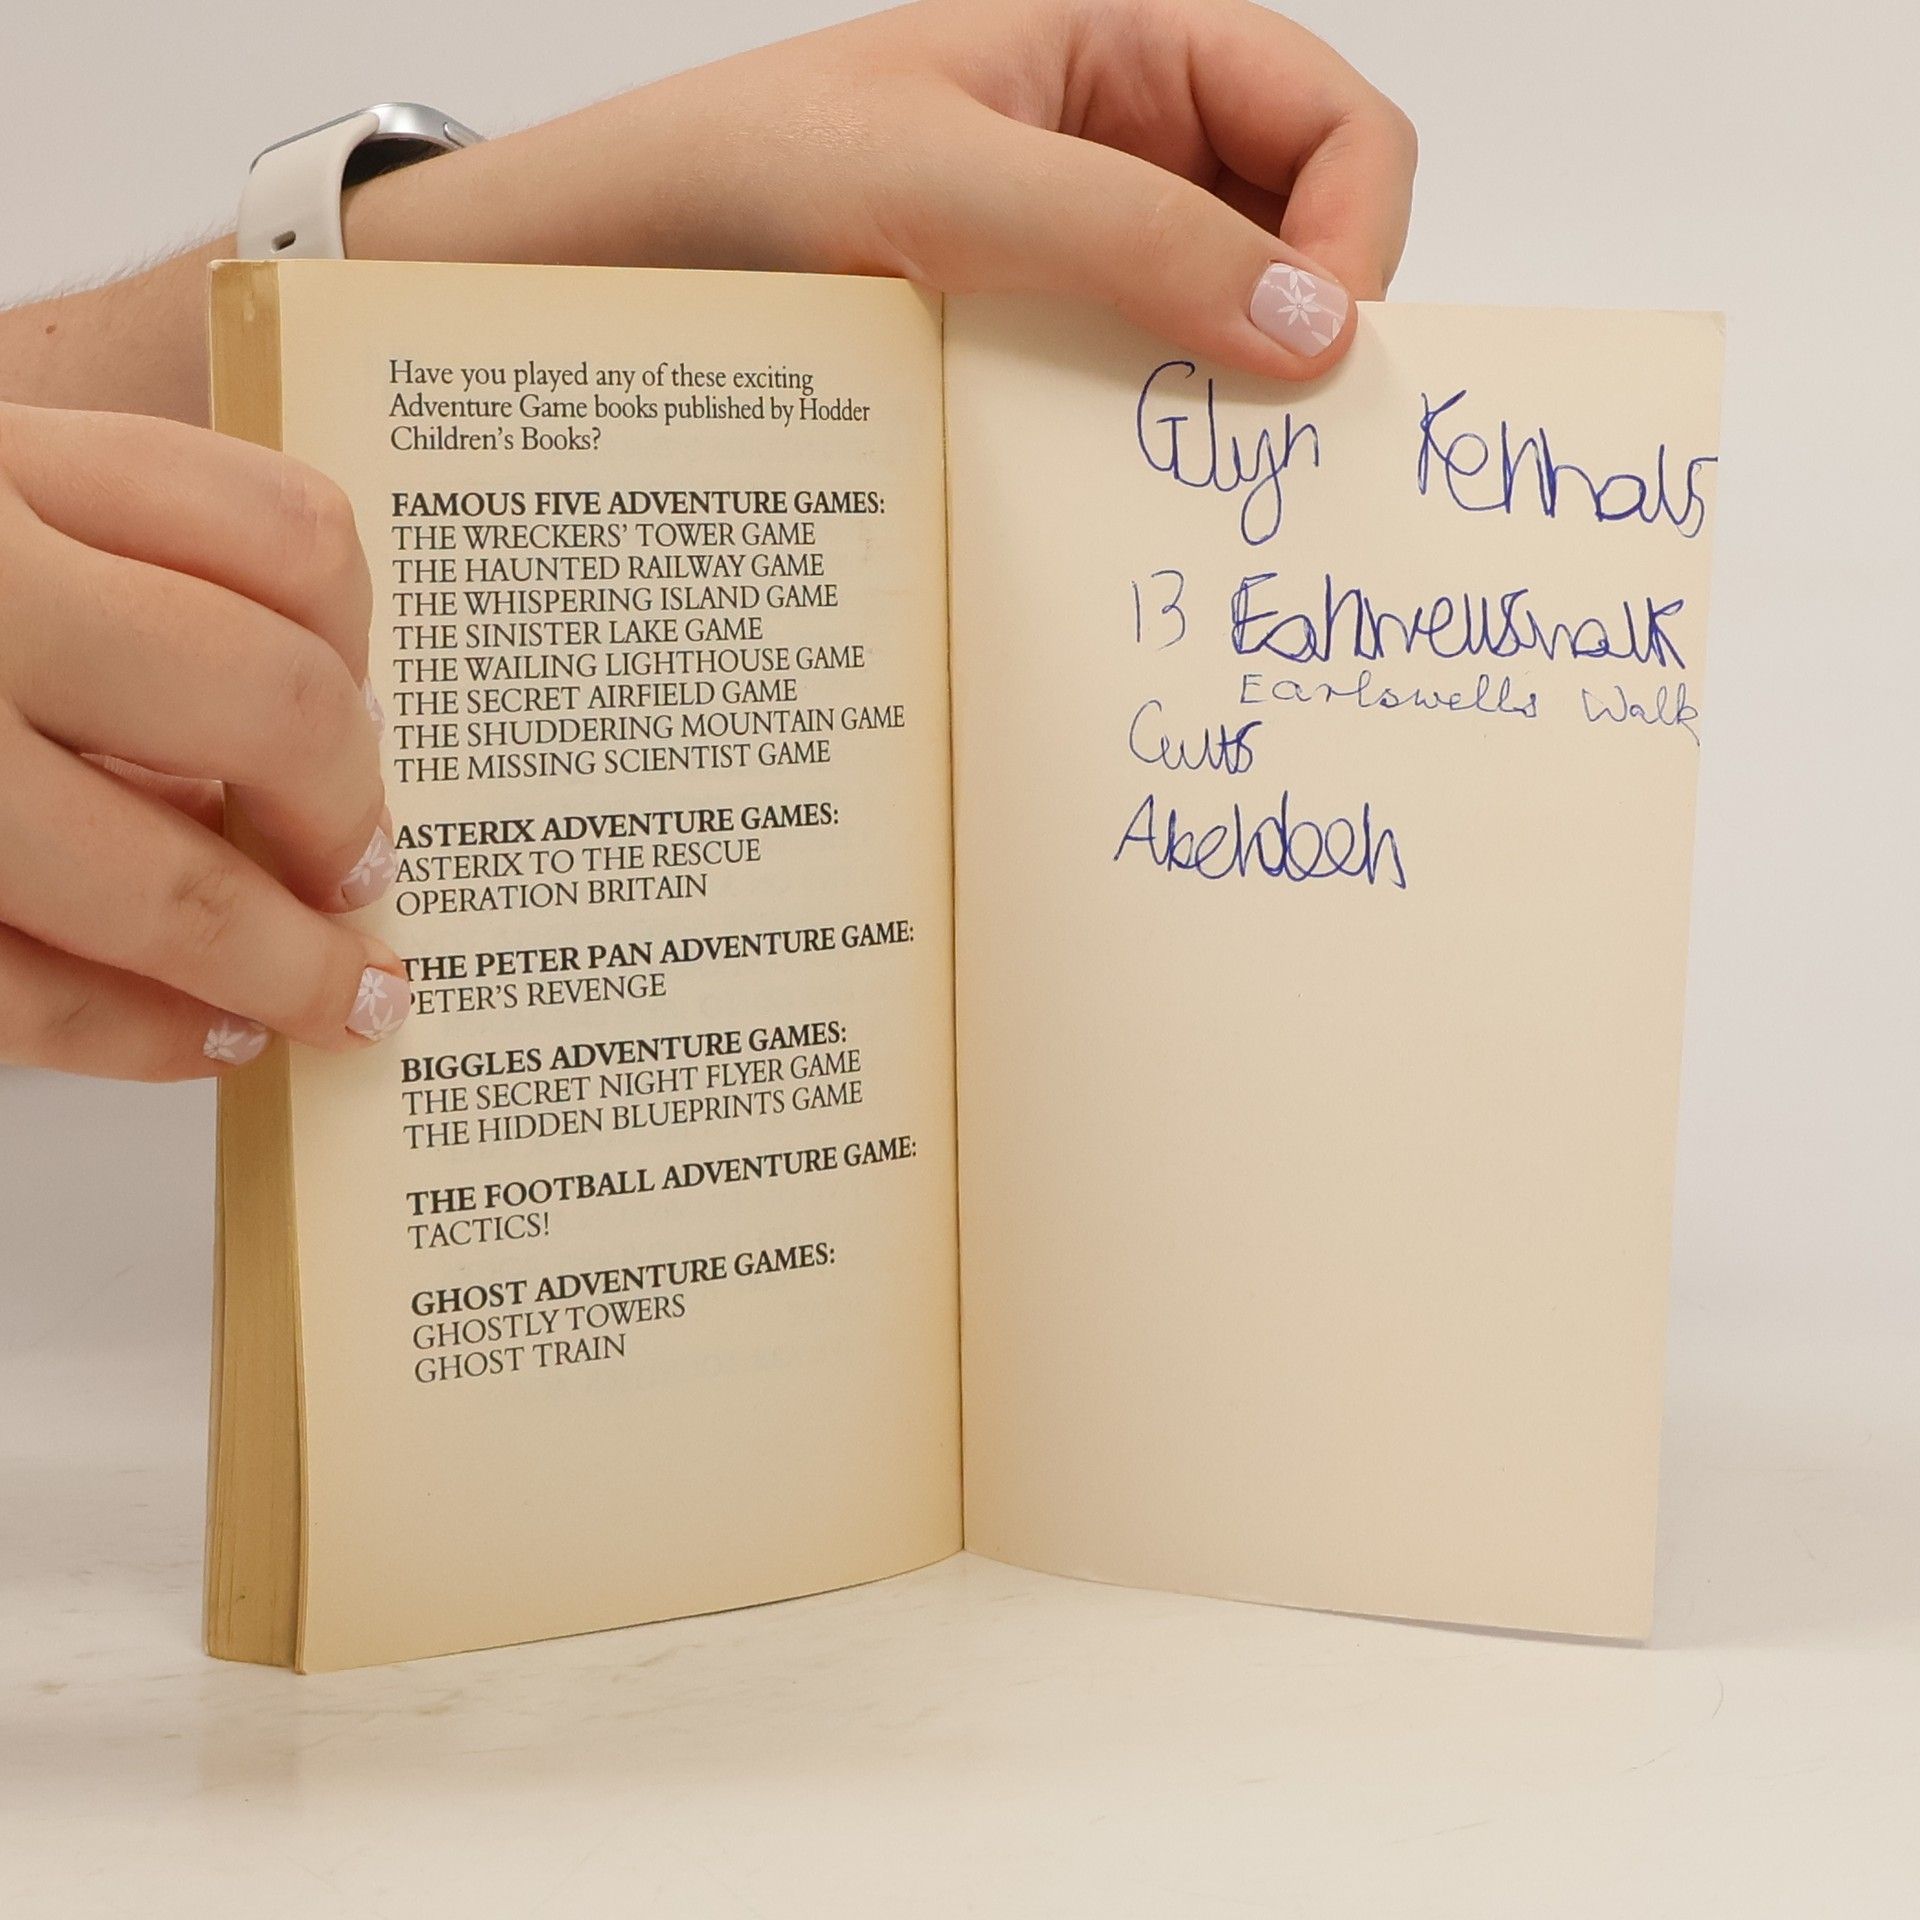 Have you played any of these exciting
Adventure Game books published by Hodder
Children's Books?
FAMOUS FIVE ADVENTURE GAMES:
THE WRECKERS' TOWER GAME
THE HAUNTED RAILWAY GAME
THE WHISPERING ISLAND GAME
THE SINISTER LAKE GAME
THE WAILING LIGHTHOUSE GAME
THE SECRET AIRFIELD GAME
THE SHUDDERING MOUNTAIN GAME
THE MISSING SCIENTIST GAME
ASTERIX ADVENTURE GAMES:
ASTERIX TO THE RESCUE
OPERATION BRITAIN
THE PETER PAN ADVENTURE GAME:
PETER'S REVENGE
BIGGLES ADVENTURE GAMES:
THE SECRET NIGHT FLYER GAME
THE HIDDEN BLUEPRINTS GAME
THE FOOTBALL ADVENTURE GAME:
TACTICS!
GHOST ADVENTURE GAMES:
GHOSTLY TOWERS
GHOST TRAIN
Glyn
13
Earlswells Walk
Cults
Aberdeen